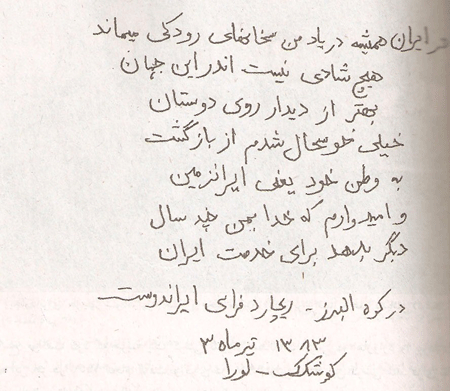 در ایران همیشه در یاد من سخانهای رودکی میماند
هیچ شادی نیست اندر این جهان
بهتر از دیدار روی دوستان
خیلی خوسحال شدم از بازگشت
به وطن خود یعنی ایرانزمین
و امیدوارم که خدا بمن چند سال
دیگر بدهد برای خدمت ایران
در کوه البرز - ریچارد فرای ایراندوست
۱۳۸۳ تیر ماه ۳
کوشکک - لورا